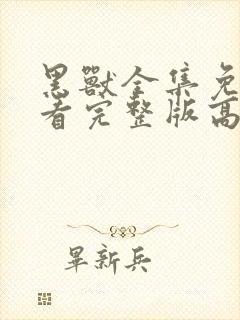 黑獸全集免
看完整版高
畢新兵